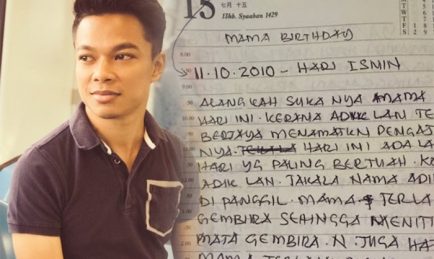 18 七月 十五
13hb. Syaaban 1429
MAMA BIRTHDAY
11.10.2010 – HARI ISNIN
ALANGKAH SUKA NYA AMAMA
HARI INI. KERANA ADIK LAN TE
BERJAYA MENAMATKN PENGAJ
NYA. HARI INI ADA LA
HARI YG PALING BERTUAH. K
ADIK LAN. TAKALA NAMA ADI
DI PANGGIL. MAMA TERLA
GEMBIRA SEHINGGA MENITI
MATA GEMBIRA. N JUGA HA
MAMA